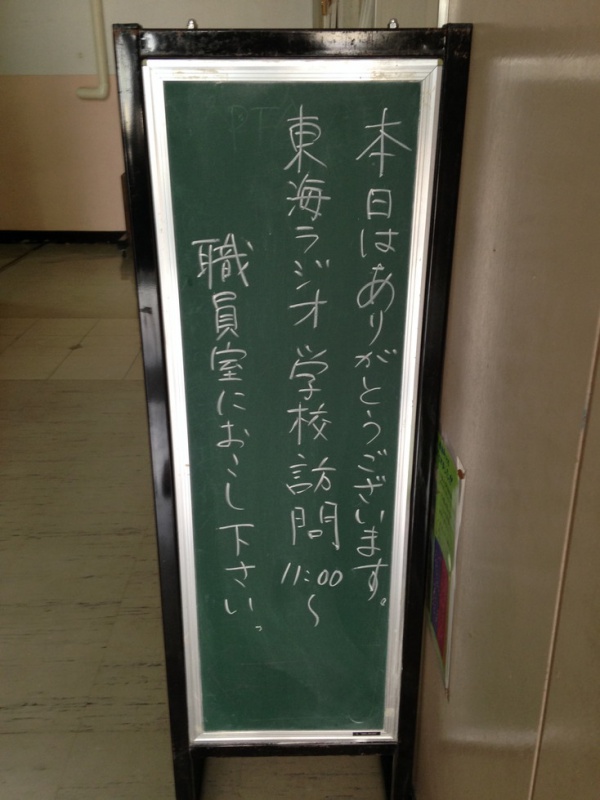 本日はありがとうございます。
東海ラジオ 学校訪問 11:00〜
職員室におこし下さい。